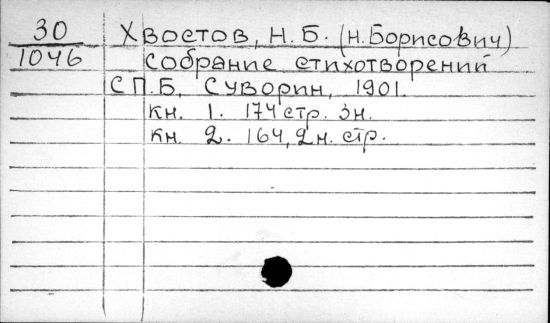 30 Хвостов, Н. Б. (Н. Борисович)
1046 Собрание стихотворений
СПБ, Суворин, 1901.
Кн. 1. 174 стр. 3н.
Кн. 2. 164, 2 н. стр.